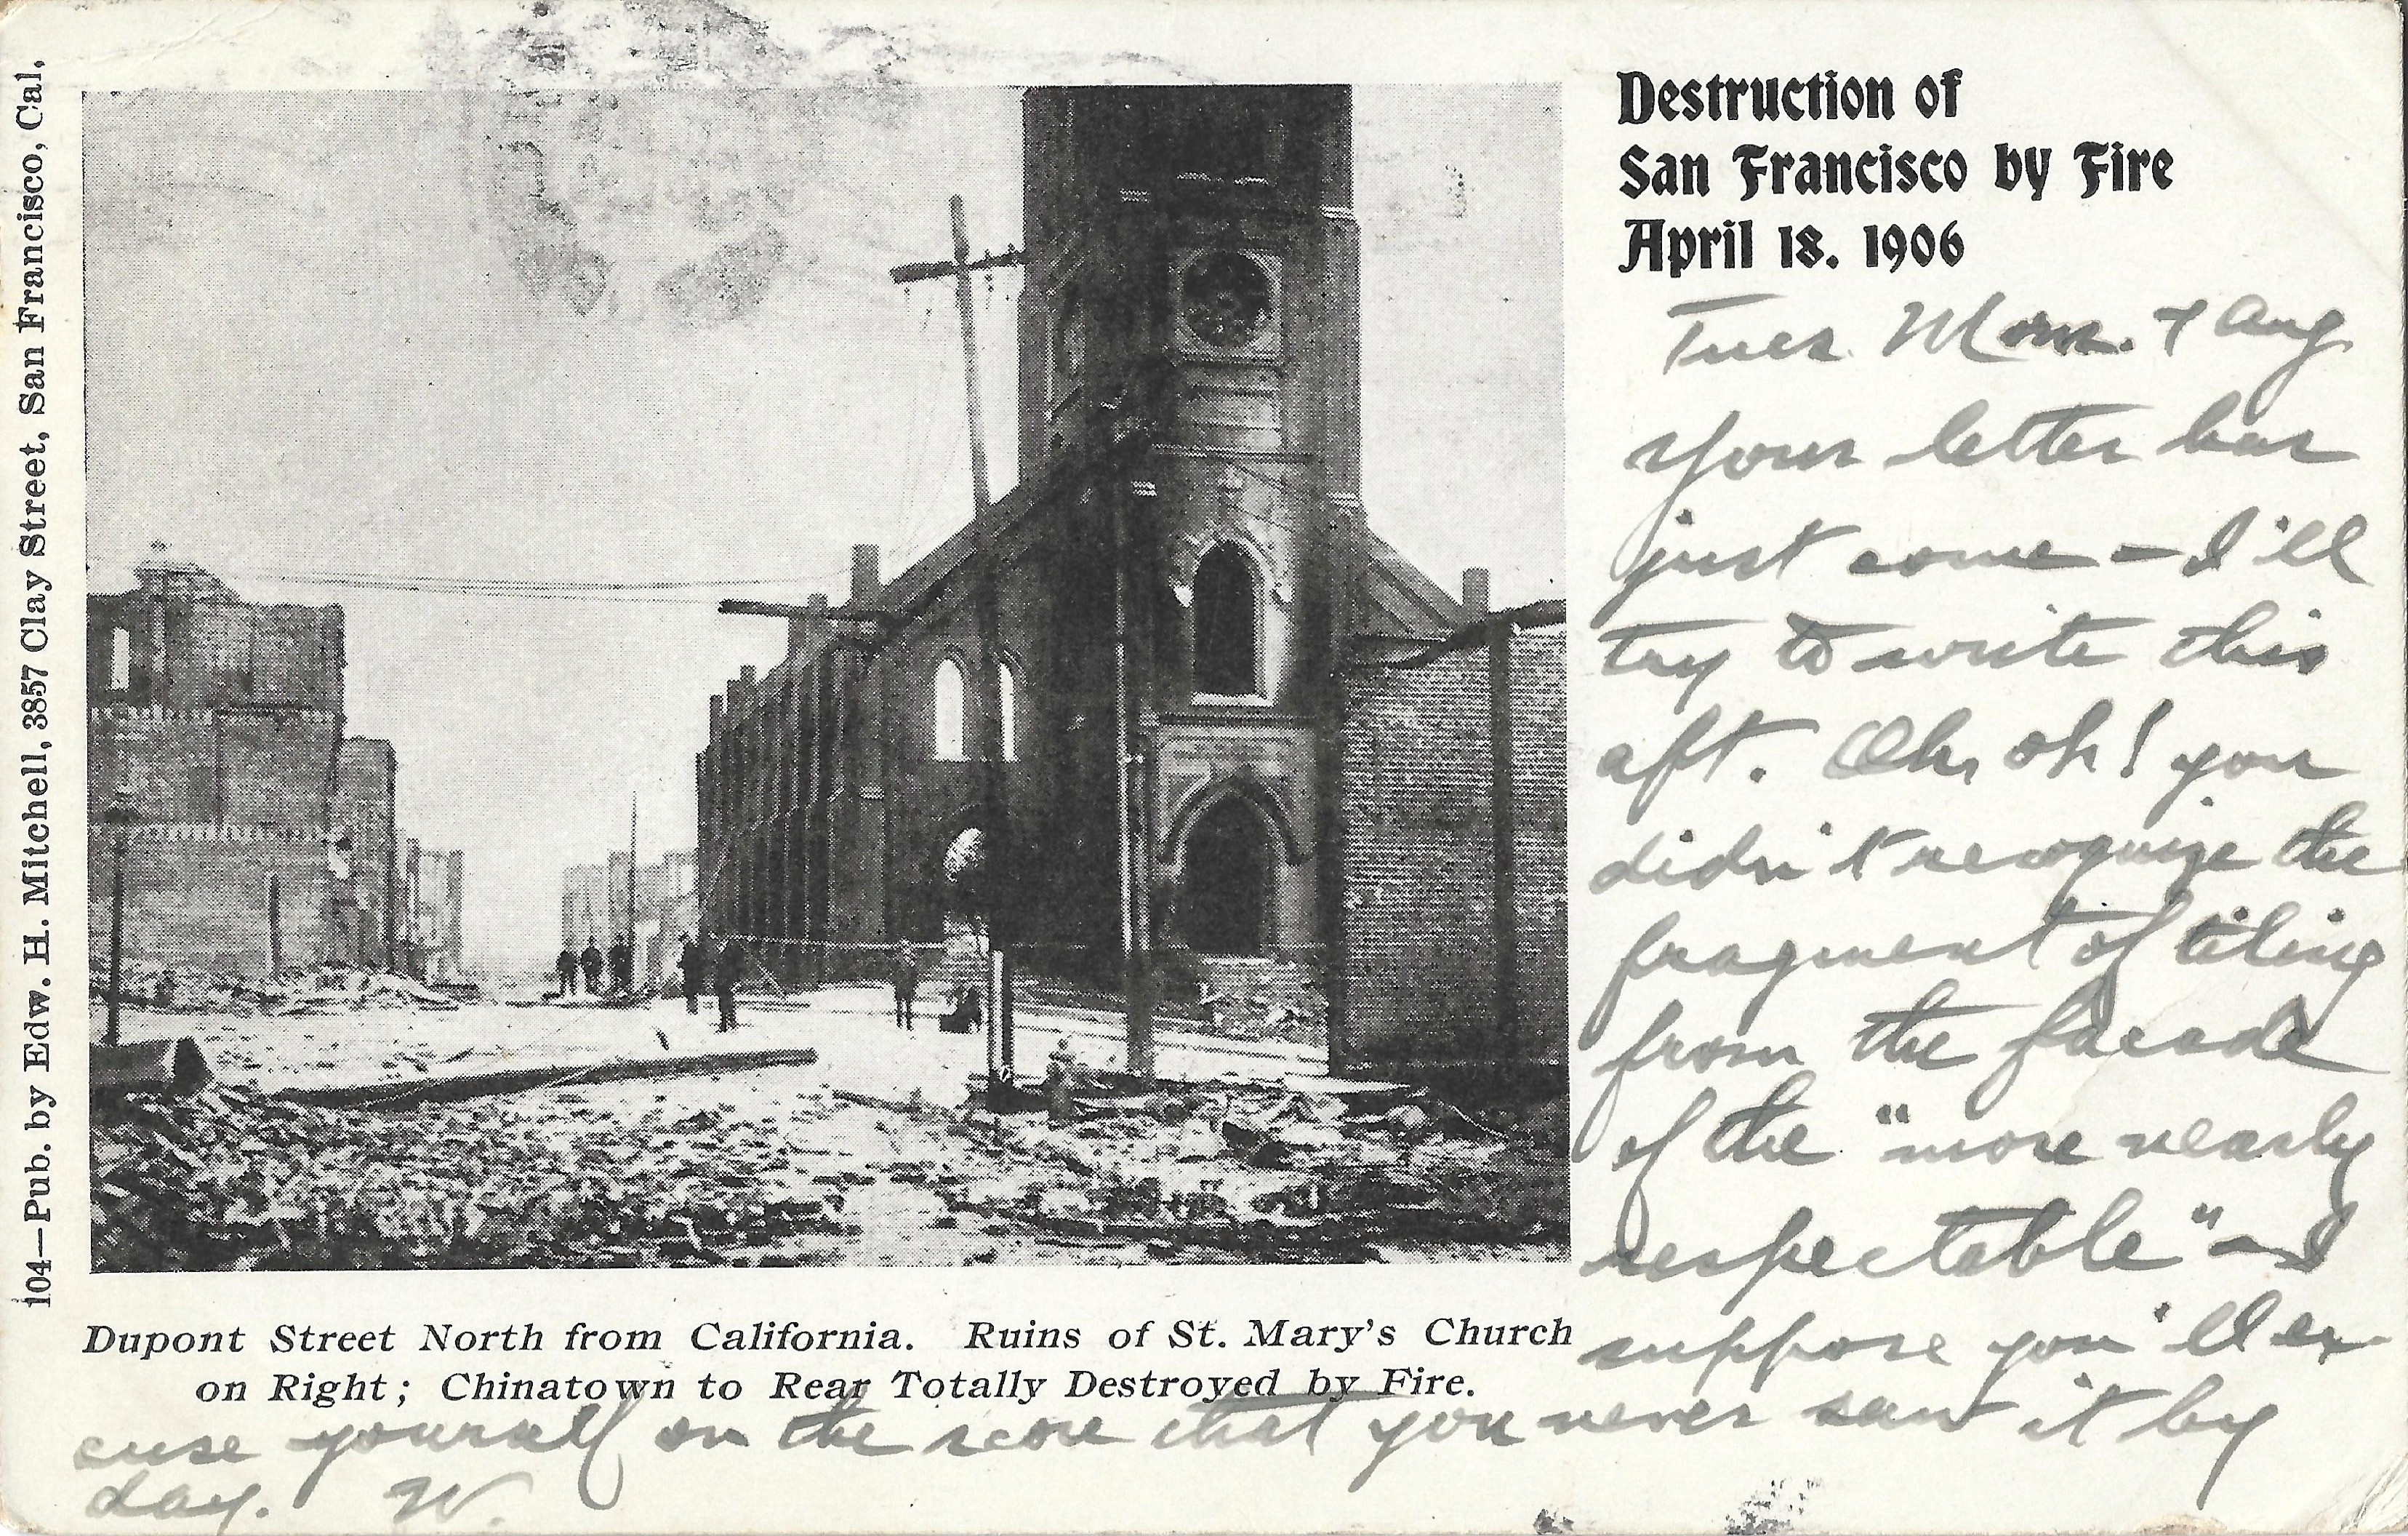 104—Pub. by Edw. H. Mitchell, 3857 Clay Street, San Francisco, Cal.
Destruction of
San Francisco by Fire
April 18. 1906
Dupont Street North from California. Ruins of St. Mary's Church
on Right; Chinatown to Rear Totally Destroyed by Fire.
Tues. Aug
Your letter has
just come – I'll
try to write this
aft. Oh, oh! you
didn't recognize the
fragment of tiling
from the facade
of the "more nearly
respectable" – I
suppose you'll ex-
cuse yourself on the score that you never saw it by
day. W.